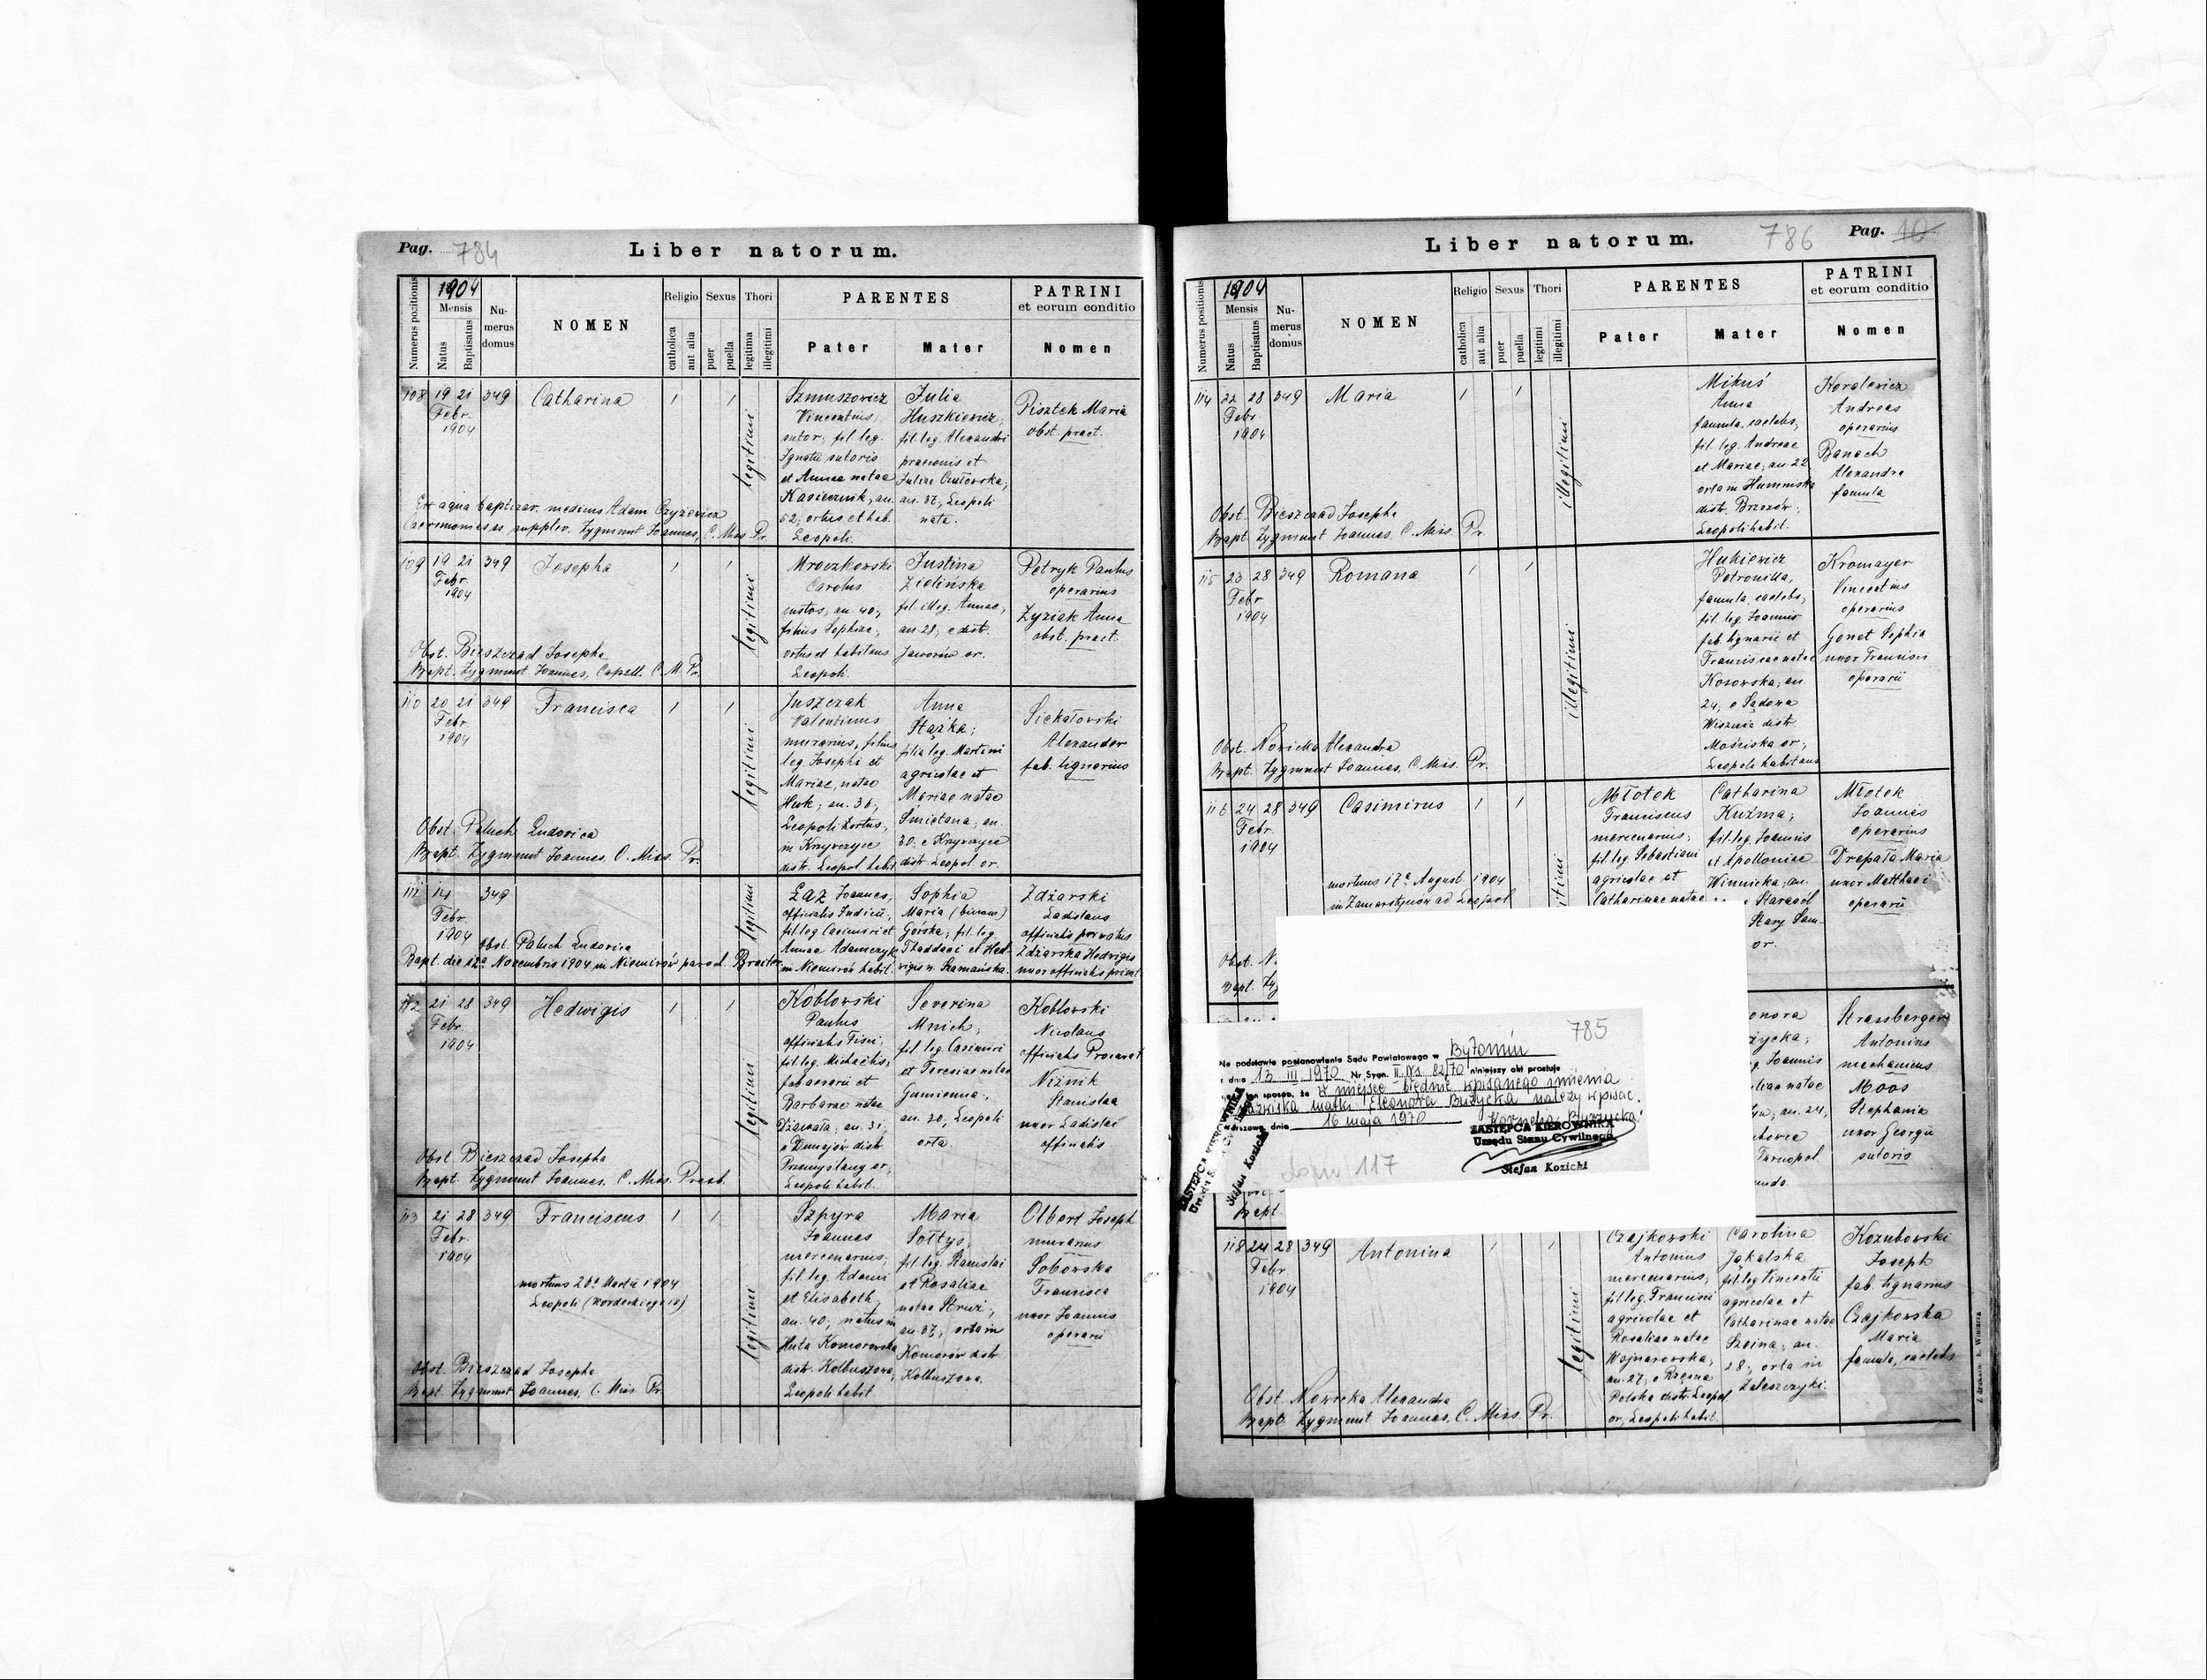 Pag. 784
Liber natorum.
Numerus positionis
1904
Mensis
Natus
Baptisatus
Nu-
merus
domus
NOMEN
Religio
catholica
aut alia
Sexus
puer
puella
Thori
legitima
illegitimi
PARENTES
Pater
Mater
PATRINI
et eorum conditio
Nomen
108 19 21 349 Catharina
Febr.
1904
legitimi
Szmuszowicz
Vincentius,
sutor, fil. leg.
Ignatii sutoris
et Annae natae
Kasiecznik, an.
52, ortus et hab.
Leopoli.
Julia
Huszkiewicz,
fil. leg. Alexandri
praeconis et
an. 37, Leopoli
nata.
Pisztek Maria
obst. pract.
Ex aqua baptizav. medicus Adam Czyzewicz
Caeremonias ss supplev. Zygmunt Joannes, C. Miss. Pr.
109 19 21 349 Josepha
Febr.
1904
legitimi
Mroczkowski
Carolus
custos, an 40,
filius Sophiae,
ortus et habitans
Leopoli.
Justina
Zielińska
fil. illeg. Annae,
an 28, e distr.
Jaworów or.
Petryk Paulus
operarius
Zyziak Anna
obst. pract.
Obst. Bieszczad Josepha
Bapt. Zygmunt Joannes, Capell. C. M. Pr.
110 20 21 349 Francisca
Febr.
1904
legitimi
Juszczak
Valentinus
murarius, filius
leg. Josephi et
Mariae, natae
Huk, an. 36,
Leopoli ortus,
in Krzywczyce
distr. Leopol. habit.
Anna
Stążka;
filia leg. Martini
agricolae et
Mariae natae
Śmietana, an.
30. e Krzywczyce
distr. Leopol. or.
Siekatowski
Alexander
fab. lignarius
Obst. Paluch Ludovica
Bapt. Zygmunt Joannes, C. Miss. Pr.
111 14 349
Febr.
1904
legitimi
Łaz Joannes,
officialis Judicii,
fil leg Casimiri et
Annae Adamczyk
in Niemirów habit.
Sophia
Maria (binom)
Górska; fil. leg.
Thaddaei et Hed-
vigis n. Szamańska.
Zdżarski
Ladislaus
officialis privatus
Zdżarska Hedvigis
uxor officialis privat.
Obst. Paluch Ludovica
Bapt. die 12a Novembris 1904 in Niemirów paroch.
112 21 28 349 Hedwigis
Febr.
1904
legitimi
Koblowski
Paulus
officialis Fisci,
fil. leg. Michaelis,
fab aerarii et
Barbarae natae
Dżawała, an. 31,
e Dunajów distr.
Przemyslany or,
Leopoli habit.
Severina
Mnich,
fil. leg Casimiri
et Teresiae natae
Gumienna,
an. 20, Leopoli
orta.
Koblowski
Nicolaus
officialis Procurat
Niżnik
Stanislaa
uxor Ladislai
officialis
Obst. Bieszczad Josepha
Bapt. Zygmunt Joannes, C. Miss. Presb.
113 21 28 349 Franciscus
Febr.
1904
mortuus 20a Martii 1904
Leopoli
legitimi
Szpyra
Joannes
mercenarius,
fil. leg. Adami
et Elisabeth,
an. 40, natus in
Huta Komorowska
distr. Kolbuszowa,
Leopoli habit.
Maria
Sołtys,
fil. leg. Stanislai
et Rosaliae
natae Struś,
an 37, orta in
Komorów distr.
Kolbuszowa.
Olbert Joseph
murarius
Sobowska
Francisca
uxor Joannis
operarii
Obst. Bieszczad Josepha
Bapt. Zygmunt Joannes, C. Miss. Pr.
Liber natorum.
786 Pag. 10
Numerus positionis
1904
Mensis
Natus
Baptisatus
Nu-
merus
domus
NOMEN
Religio
catholica
aut alia
Sexus
puer
puella
Thori
legitimi
illegitimi
PARENTES
Pater
Mater
PATRINI
et eorum conditio
Nomen
114 22 28 349 Maria
Febr
1904
illegitimi
Mikuś
Anna
famula, caelebs,
fil. leg. Andreae
et Mariae, an 22
orta in Humniska
distr. Brzozów,
Leopoli habit.
Kovalewicz
Andreas
operarius
Banach
Alexandra
famula
Obst. Bieszczad Josepha
Bapt. Zygmunt Joannes, C. Miss. Pr.
115 23 28 349 Romana
Febr
1904
illegitimi
Hukiewicz
Petronilla,
famula, caelebs,
fil. leg. Joannis
fab. lignarii et
Franciscae natae
Kosowska, an
24, e Sądowa
Wisznia distr.
Mościska or,
Leopoli habitans
Kromayer
Vincentius
operarius
Gonet Sophia
uxor Francisci
operarii
Obst. Nowicka Alexandra
Bapt. Zygmunt Joannes, C. Miss. Pr.
116 24 28 349 Casimirus
Febr.
1904
mortuus 17a August. 1904
in Zamarstynów ad Leopol
itimi
Młotek
Franciscus
mercenarius,
fil. leg. Sebastiani
agricolae et
Catharinae natae
Catharina
Kuźma,
fil. leg. Joannis
et Apolloniae
Winnicka, an.
e Starasól
Stary Sam-
or.
Młotek
Joannes
operarius
Drepała Maria
uxor Matthaei
operarii
Obst. N.
Bapt. Zy
785
Na podstawie postanowienia Sądu Powiatowego w Bytomiu
z dnia 13 III 1970 Nr Sygn. II Ns. 82/70 niniejszy akt prostuje
sposób, że w miejsce błędnie wpisanego imienia
nazwiska matki Eleonora Bużycka należy wpisać:
Warszawa, dnia 16 maja 1970
ZASTĘPCA KIEROWNIKA
Urzędu Stanu Cywilnego
Stefan Kozicki
117
ZASTĘPCA KIEROWNIKA
Stefan Kozicki
onora
życka;
g. Joannis
liae natae
an. 24,
Tarnopol
unda.
Strassberger
Antonius
mechanicus
Moos
Stephania
uxor Georgii
sutoris
Bapt.
118 24 28 349 Antonina
Febr
1904
legitimi
Czajkowski
Antonius
mercenarius,
fil. leg. Francisci
agricolae et
Rosaliae natae
Wojnarowska,
an. 27, e Rzęsna
Polska distr. Leopol
or, Leopoli habit.
Carolina
Jakalska
fil. leg Vincentii
agricolae et
Catharinae natae
Szeina, an.
28, orta in
Zaleszczyki.
Kozubowski
Joseph
fab. lignarius
Czajkowska
Maria
famula, caelebs
Obst. Nowicka Alexandra
Bapt. Zygmunt Joannes, C. Miss. Pr.
Z drukarni E. Winiarza